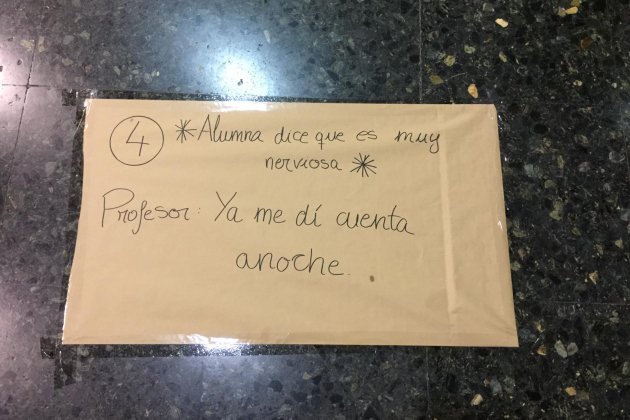 4 *Alumna dice que es muy
nerviosa *
Profesor: Ya me dí cuenta
anoche.